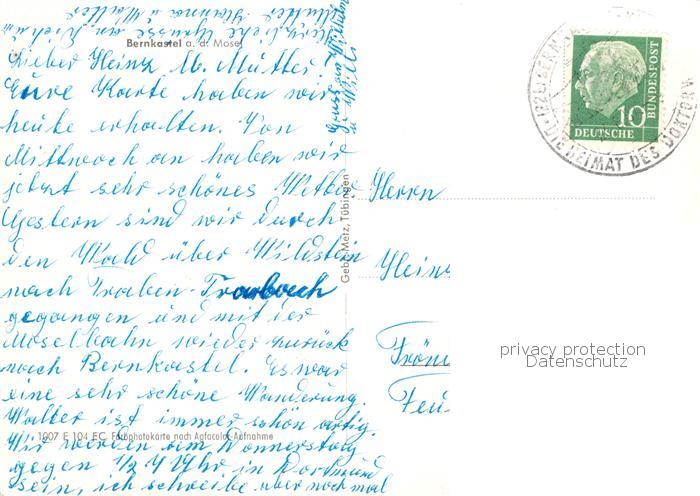 Bernkastel a. d. Mosel
Lieber Heinz lb. Mutter
Eure Karte haben wir
heute erhalten. Von
Mittwoch an haben wir
jetzt sehr schönes Wetter.
Gestern sind wir durch
den Wald über Wildstein
nach Traben-Trarbach
gegangen und mit der
Moselbahn wieder zurück
nach Bernkastel. Es war
eine sehr schöne Wanderung.
Walter ist immer schön artig.
Wir werden am Donnerstag
gegen 1/2 4 Uhr in Dortmund
sein, ich schreibe aber noch mal
Herzliche Grüsse an
Mutter Hanna u Walter
1007 E 104 EC Farbphotokarte nach Agfacolor-Aufnahme
Gebr. Metz, Tübingen
Herrn
Heinz
DIE HEIMAT DES DOKTORW
10
DEUTSCHE
BUNDESPOST
privacy protection
Datenschutz